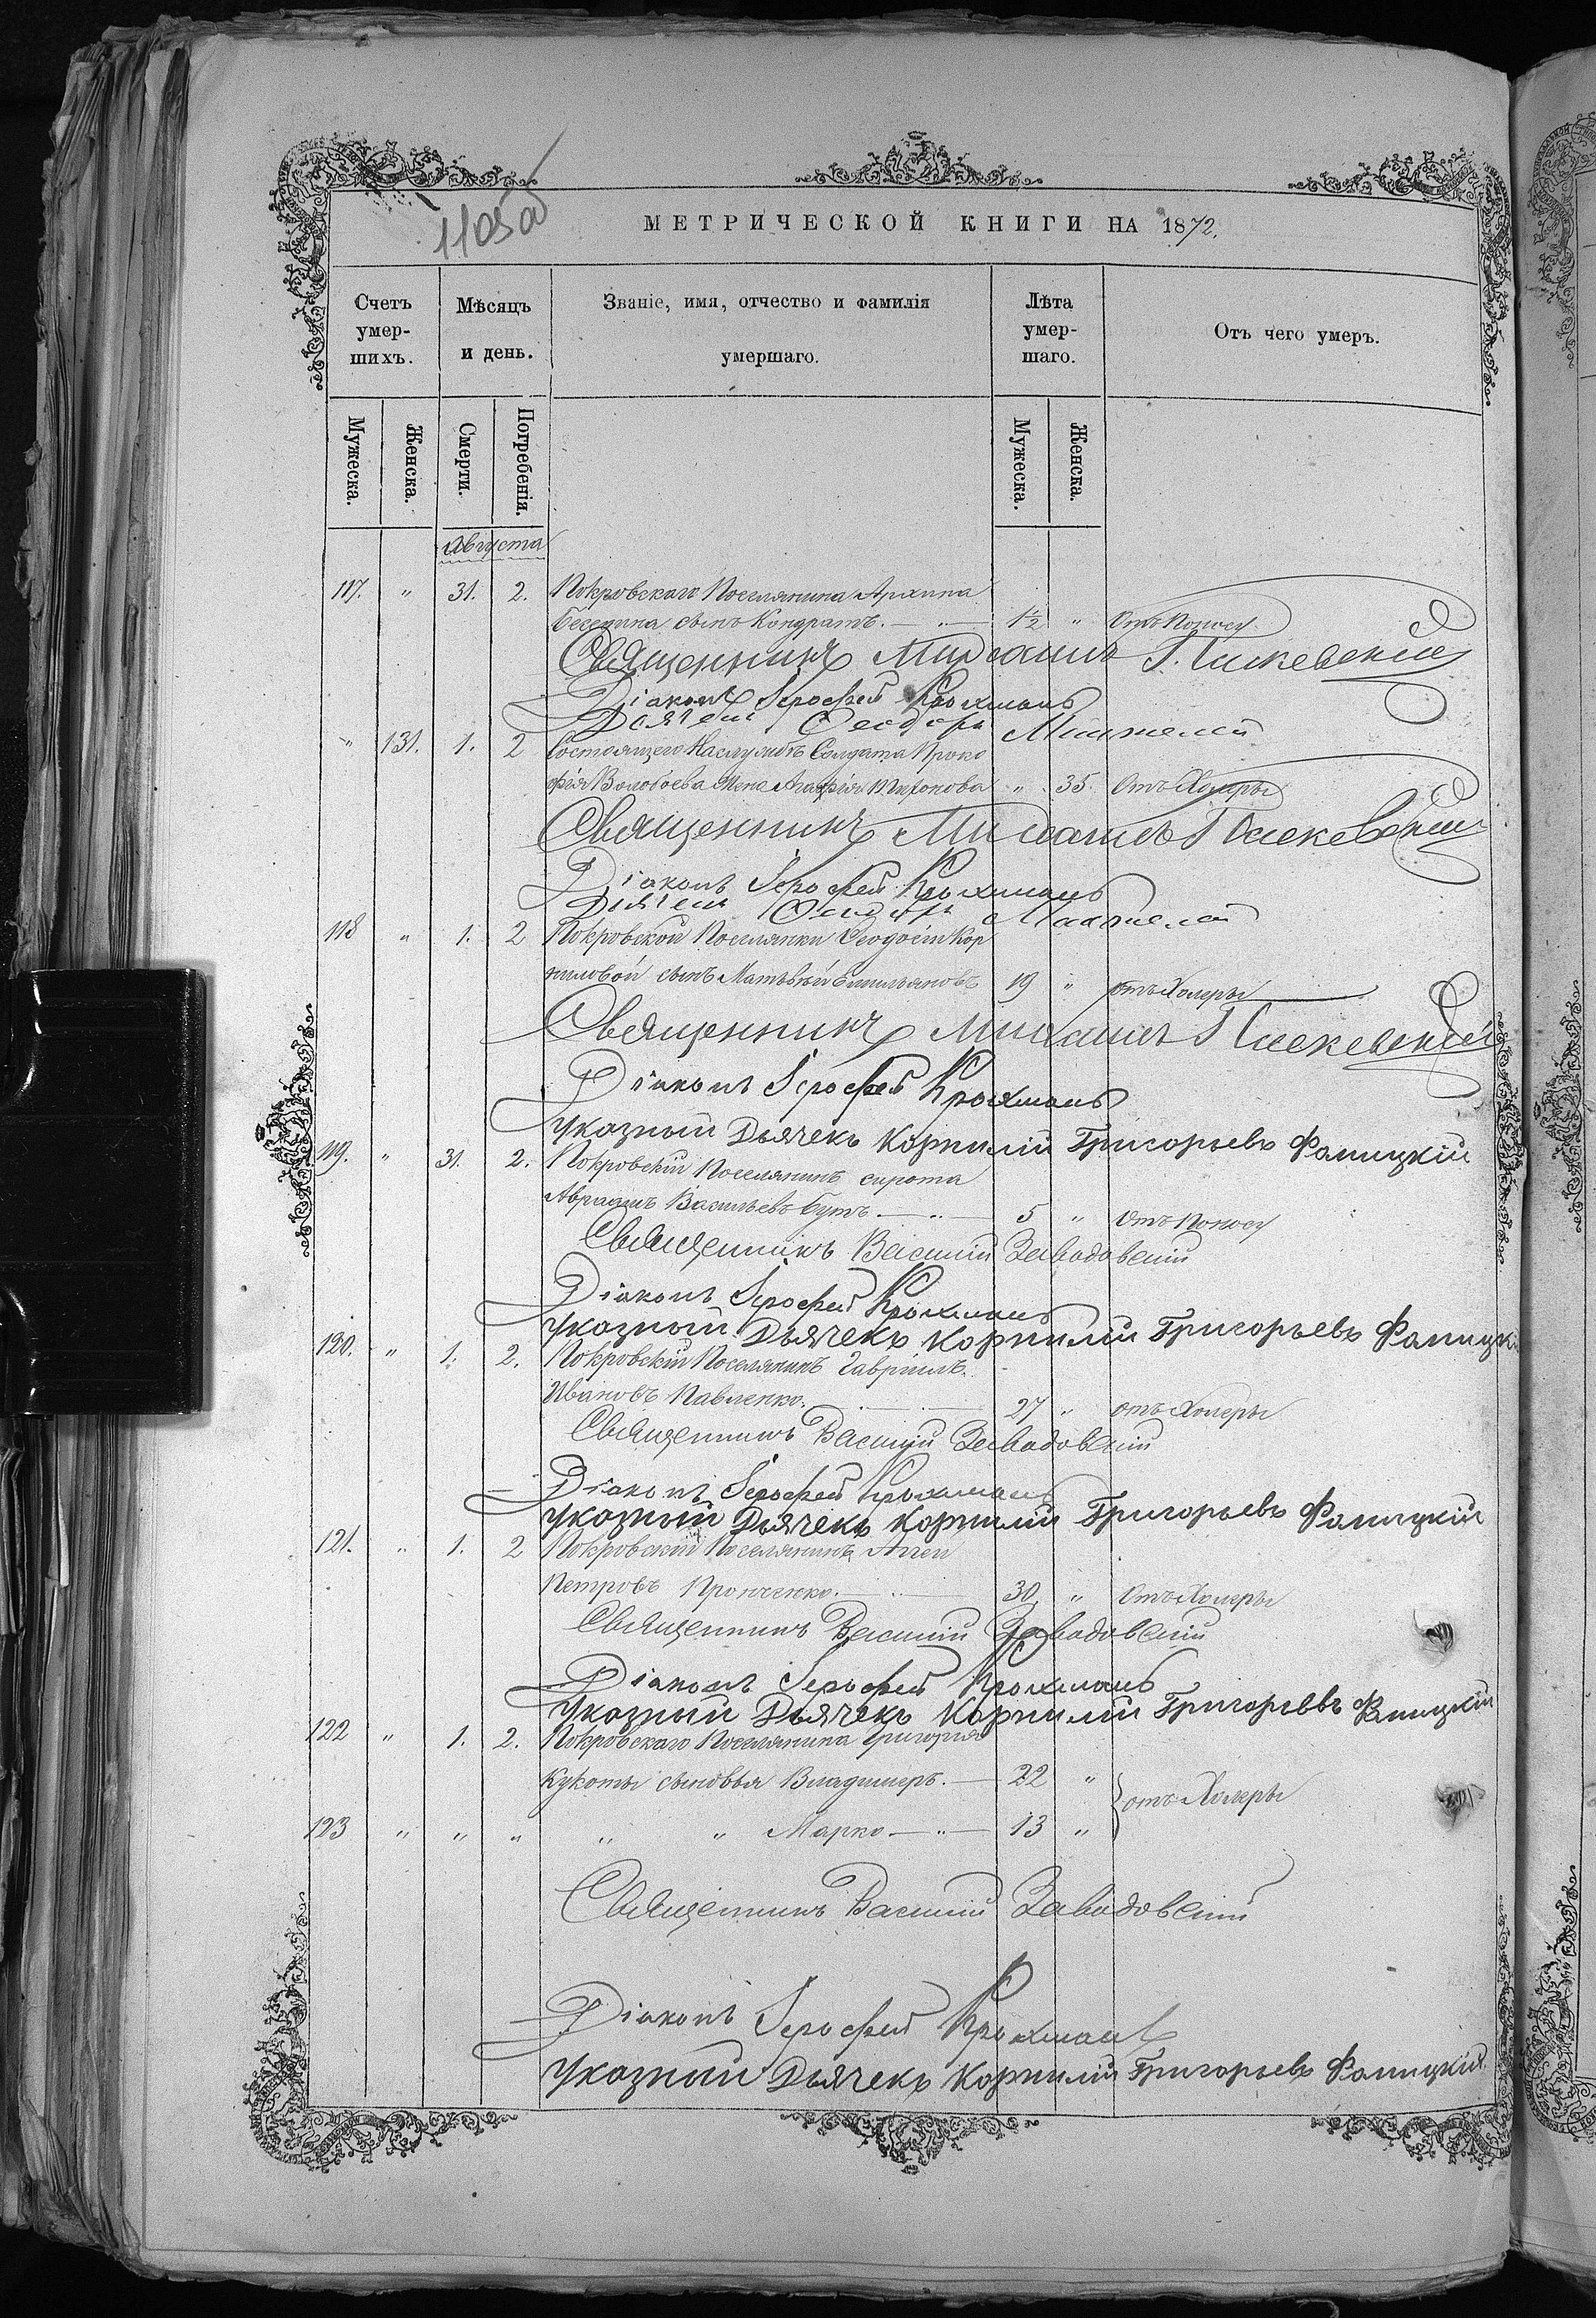 1105 об
МЕТРИЧЕСКОЙ КНИГИ НА 1872.
Счетъ умер-шихъ.
Мѣсяцъ и день.
Званіе, имя, отчество и фамилія умершаго.
Лѣта умер-шаго.
Отъ чего умеръ.
Мужеска. Женска. Смерти. Погребенія. Мужеска. Женска.
Августа
117. " 31. 2. Покровскаго Поселянина Архипа
сынъ Кондратъ. — " — 1½ " Отъ Поносу
Священникъ Михаилъ
Діаконъ Іерофей Крохмаль
Дьячекъ Ѳеодоръ
" 131. 1. 2 Состоящего На службѣ Солдата Проко
фія Волобоева жена Агафія " 35 Отъ Холеры
Священникъ Михаилъ
Діаконъ Іерофей Крохмаль
Дьячекъ Ѳеодоръ
118 " 1. 2 Покровской Поселянки Ѳеодосіи Кор
ниловой сынъ Матѣвѣй Емильяновъ 19 " отъ Холеры
Священникъ Михаилъ
Діаконъ Іерофей Крохмаль
Указный Дьячекъ Корнилій Григорьевъ Фалицкій
119. " 31. 2. Покровскій Поселянинъ сирота
Авраамъ Васильевъ Бутъ. — " — 5 " Отъ Поносу
Священникъ Василій Заводовскій
Діаконъ Іерофей Крохмаль
Указный Дьячекъ Корнилій Григорьевъ Фалицкій
120. " 1. 2. Покровскій Поселянинъ Гавріилъ
Ивановъ Павленко. 27 " отъ Холеры
Священникъ Василій Заводовскій
Діаконъ Іерофей Крохмаль
Указный Дьячекъ Корнилій Григорьевъ Фалицкій
121. " 1. 2 Покровскій Поселянинъ Аггей
Петровъ Пронченко. — " — 30 " Отъ Холеры
Священникъ Василій Заводовскій
Діаконъ Іерофей Крохмаль
Указный Дьячекъ Корнилій Григорьевъ Фалицкій
122 " 1. 2. Покровскаго Поселянина Григорія
Кукоты сыновья Владимеръ. — 22 "
отъ Холеры
123 " " " " " Марко — " — 13 "
Священникъ Василій Заводовскій
Діаконъ Іерофей Крохмаль
Указный Дьячекъ Корнилій Григорьевъ Фалицкій.